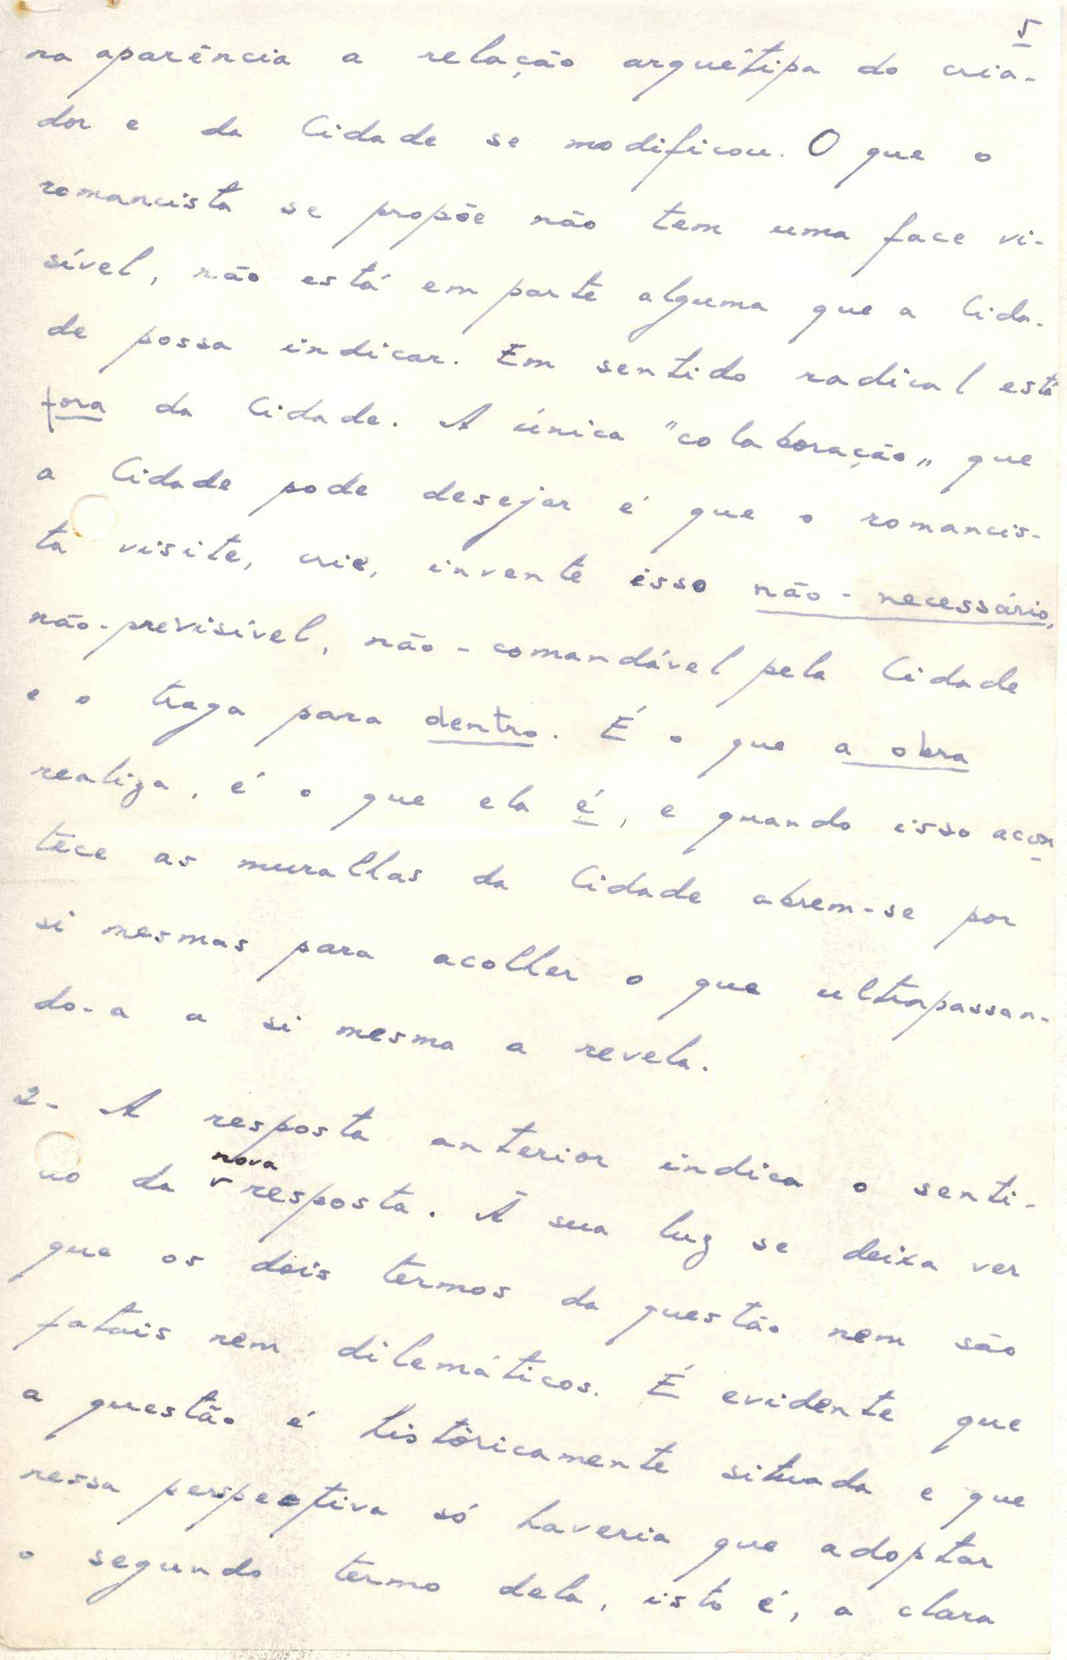 5
na aparência a relação arquétipa do cria-
dor e da Cidade se modificou. O que o
romancista se propõe não tem uma face vi-
sível, não está em parte alguma que a Cida-
de possa indicar. Em sentido radical está
fora da Cidade. A única "colaboração„ que
a Cidade pode desejar é que o romancis-
ta visite, crie, invente isso não-necessário,
não-previsível, não-comandável pela Cidade
e o traga para dentro. É o que a obra
realiza, é o que ela é, e quando isso acon
tece as muralhas da Cidade abrem-se por
si mesmas para acolher o que ultrapassan-
do-a a si mesma a revela.
2- A resposta anterior indica o senti-
nova
do da resposta. À sua luz se deixa ver
que os dois termos da questão nem são
fatais nem dilemáticos. É evidente que
a questão é històricamente situada e que
nessa perspectiva só haveria que adoptar
o segundo termo dela, isto é, a clara